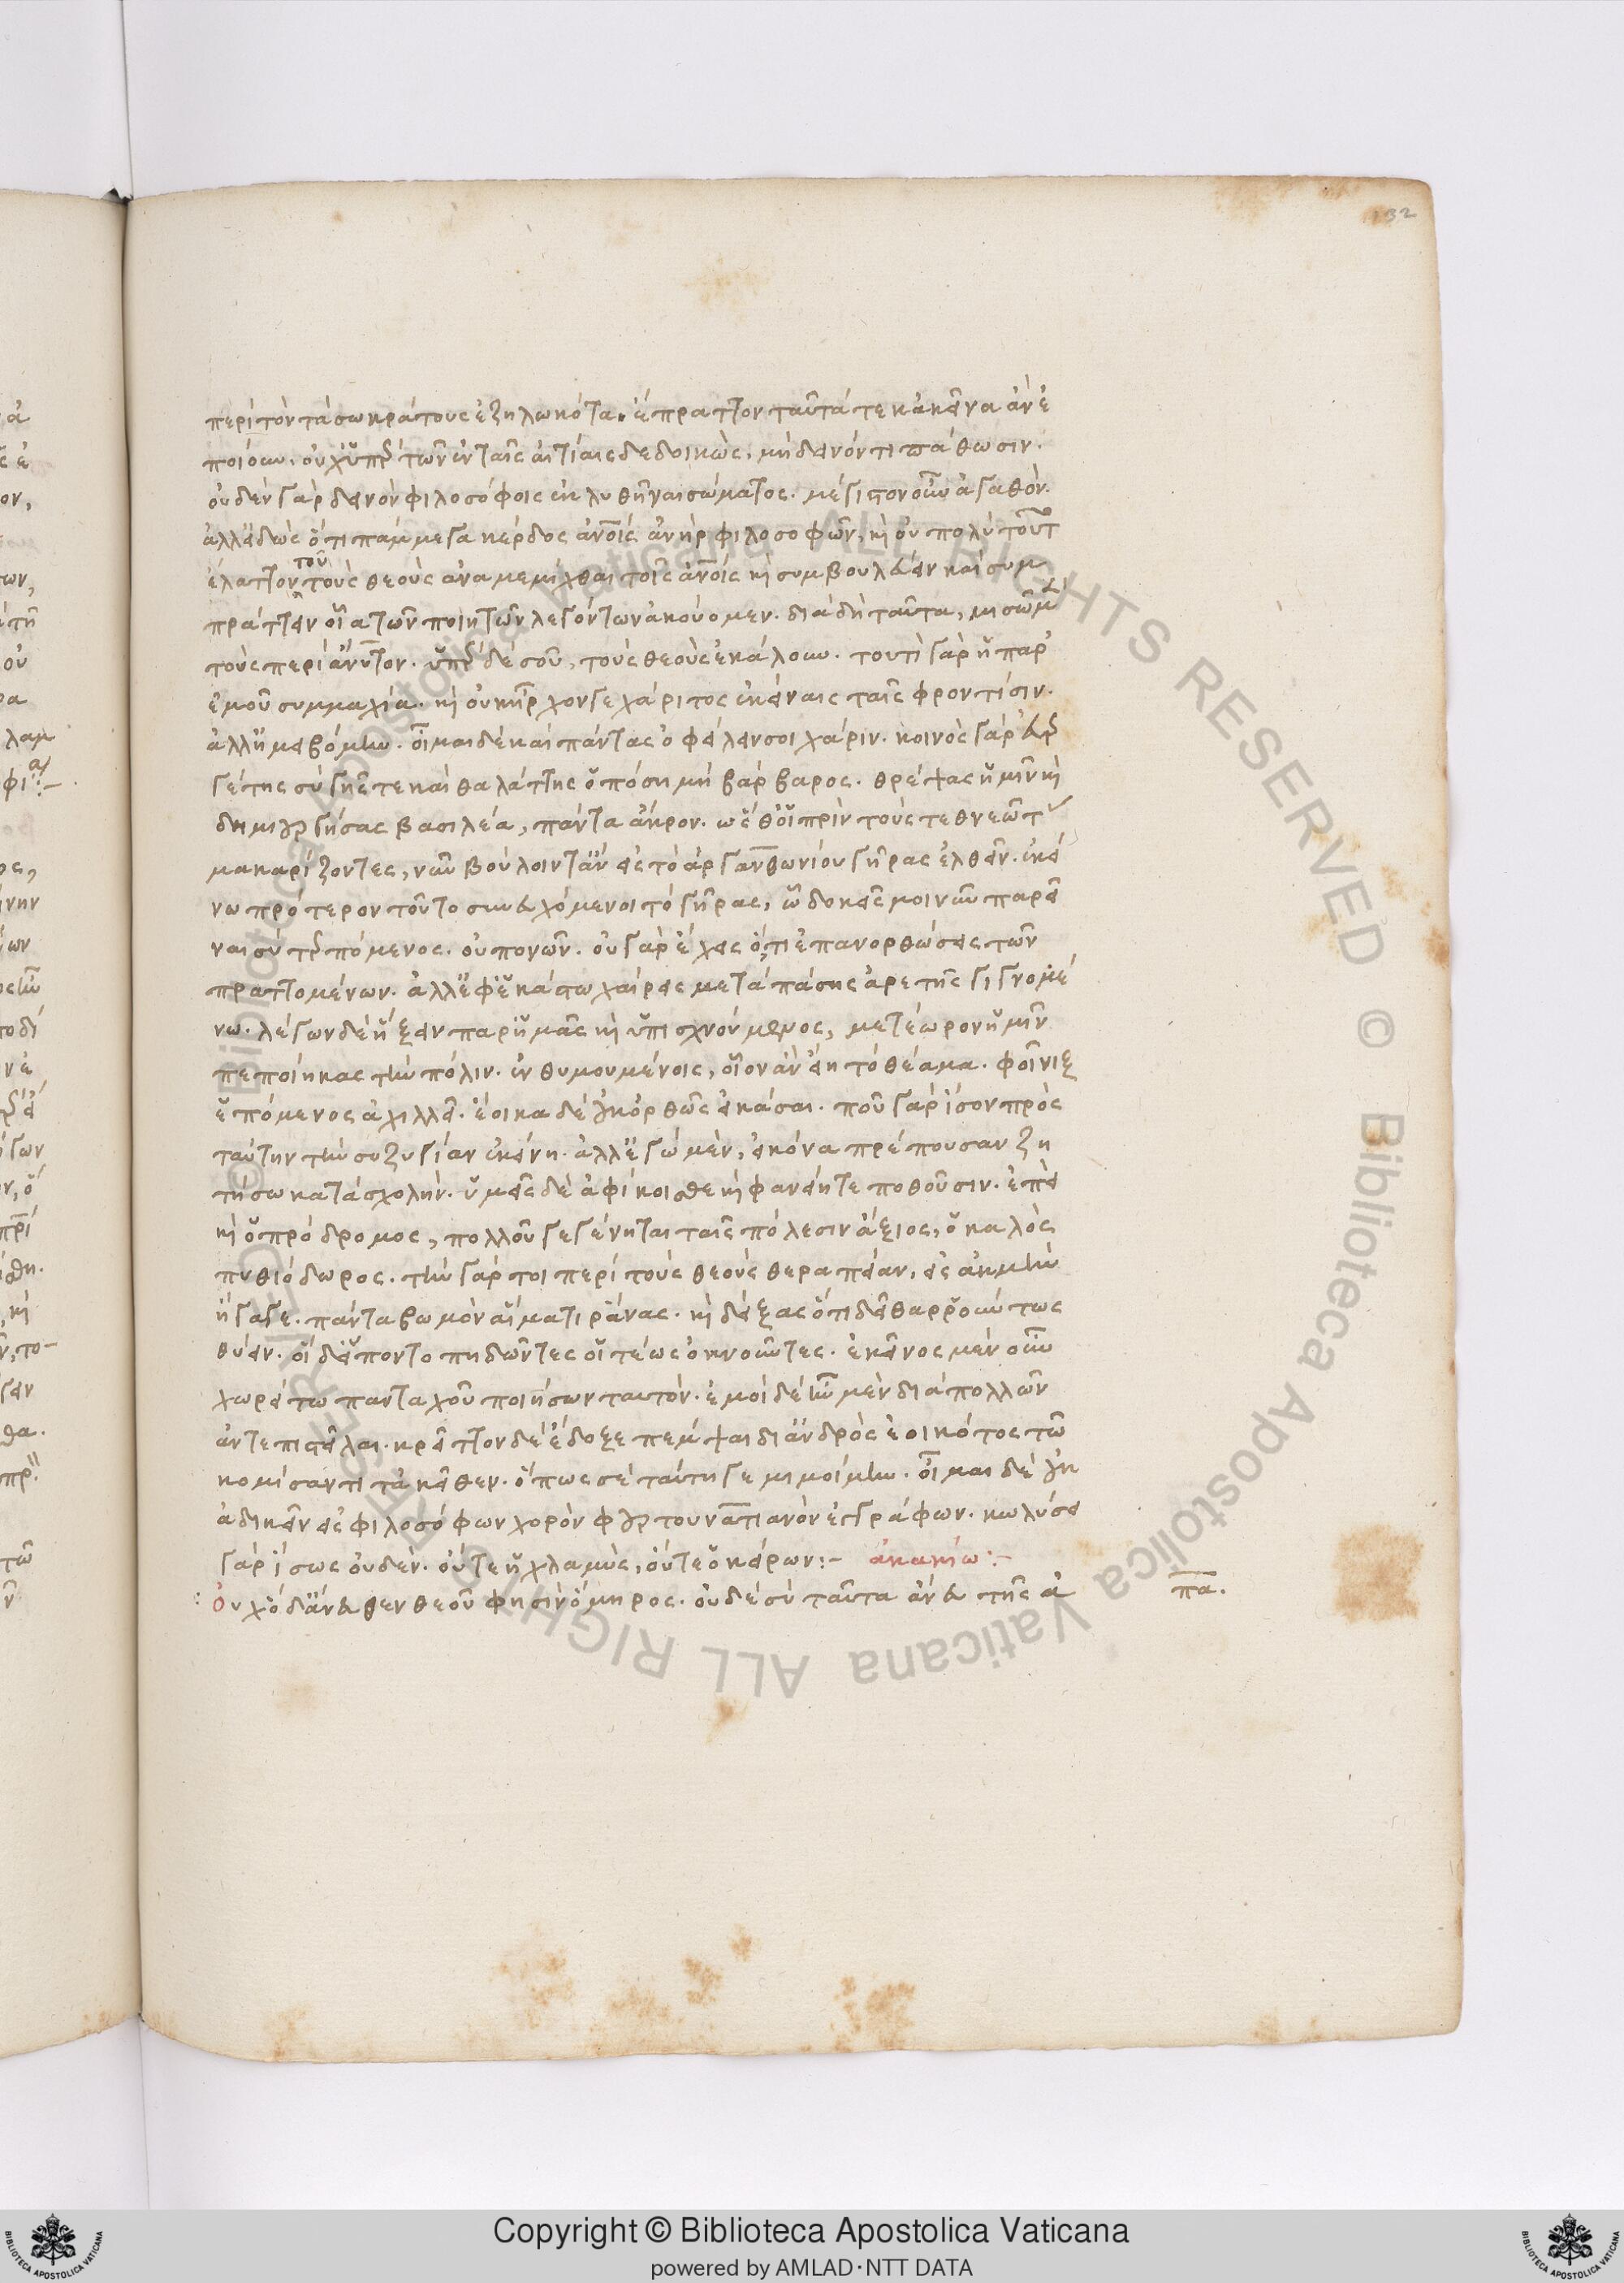 132
περὶ τὸν τὰ σωκράτους ἐζηλωκότα. ἔπραττον ταῦτά τε κἀκεῖνα ἂν ἐ
ποίουν. οὐχ ὑπὲρ τῶν ἐν ταῖς αἰτίαις δεδοικὼς, μὴ δεινόν τι πάθωσιν.
οὐδὲν γὰρ δεινὸν φιλοσόφοις ἐκλυθῆναι σώματος. μέγιστον οὖν ἀγαθόν.
ἀλλ' εἰδὼς ὅτι πάμμεγα κέρδος ἀνοις ἀνὴρ φιλοσοφῶν, κὶ οὐ πολὺ τοῦτ
του
ἔλαττον τοὺς θεοὺς ἀναμεμίχθαι τοῖς ἀνοις κὶ συμβουλεύειν καὶ συμ
πράττειν οἷα τῶν ποιητῶν λεγόντων ἀκούομεν. διὰ δὴ ταῦτα, μισῶ μ
τοὺς περὶ ἄνυτον. ὑπὲρ δὲ σοῦ, τοὺς θεοὺς ἐκάλουν. τουτὶ γὰρ ἡ παρ'
ἐμοῦ συμμαχία. κὶ οὐκ ἦρχόν γε χάριτος ἐκείναις ταῖς φροντίσιν.
ἀλλ' ἠμειβόμην. οἶμαι δὲ καὶ πάντας ὀφείλειν σοι χάριν. κοινὸς γὰρ εὐερ
γέτης σὺ γῆς τε καὶ θαλάττης ὁπόση μὴ βάρβαρος. θρέψας ἡμῖν κὶ
δημιουργήσας βασιλέα, πάντα ἄκρον. ὥσθ' οἱ πρὶν τοὺς τεθνεῶτ
μακαρίζοντες, νῦν βούλοιντ' ἂν εἰς τὸ ἀργανθωνίου γῆρας ἐλθεῖν. ἐκεί
νω πρότερον τοῦτο συνευχόμενοι τὸ γῆρας, ὧ δοκεῖς μοι νῦν παρεῖ
ναι σὺ τερπόμενος. οὐ πονῶν. οὐ γὰρ ἔχεις ὅ,τι ἐπανορθώσεις τῶν
πραττομένων. ἀλλ' ἐφ' ἑκάστω χαίρεις μετὰ πάσης ἀρετῆς γιγνομέ
νω. λέγων δὲ ἥξειν παρ' ἡμᾶς κὶ ὑπισχνούμενος, μετέωρον ἡμῖν
πεποίηκας τὴν πόλιν. ἐνθυμουμένοις, οἷον ἂν εἴη τὸ θέαμα. φοῖνιξ
ἑπόμενος ἀχιλλεῖ. ἔοικα δὲ οὐκ ὀρθῶς εἰκάσαι. ποῦ γὰρ ἴσον πρὸς
ταύτην τὴν συζυγίαν ἐκείνη. ἀλλ' ἐγὼ μὲν, εἰκόνα πρέπουσαν ζη
τήσω κατὰ σχολήν. ὑμεῖς δὲ ἀφίκοισθε κὶ φανείητε ποθοῦσιν. ἐπεὶ
κὶ ὁ πρόδρομος, πολλοῦ γεγένηται ταῖς πόλεσιν ἄξιος, ὁ καλὸς
πυθιόδωρος. τὴν γάρ τοι περὶ τοὺς θεοὺς θεραπείαν, εἰς ἀκμὴν
ἤγαγε. πάντα βωμὸν αἵματι ῥάνας. κὶ δείξας ὅτι δεῖ θαρρούντως
θύειν. οἱ δ' εἵποντο πηδῶντες οἱ τέως ὀκνοῦντες. ἐκεῖνος μὲν οὖν
χωρείτω πανταχοῦ ποιήσων ταυτόν. ἐμοὶ δὲ ἦν μὲν διὰ πολλῶν
ἀντεπιστεῖλαι. κρεῖττον δὲ ἔδοξε πέμψαι δι' ἀνδρὸς ἐοικότος τῶ
κομίσαντι τἀκεῖθεν. ὅπως σὲ ταύτη γε μιμοίμην. οἶμαι δὲ οὐκ
ἀδικεῖν εἰς φιλοσόφων χορὸν φουρτουνατιανὸν ἐγγράφων. κωλύσει
γὰρ ἴσως οὐδὲν. οὔτε ἡ χλαμὺς, οὔτε ὁ κείρων:- ἀκακίω:-
Οὐχ ὅδ' ἄνευθεν θεοῦ φησὶν ὅμηρος. οὐδὲ σὺ ταῦτα ἄνευ τῆς ἀ
πα.
Copyright © Biblioteca Apostolica Vaticana
powered by AMLAD·NTT DATA